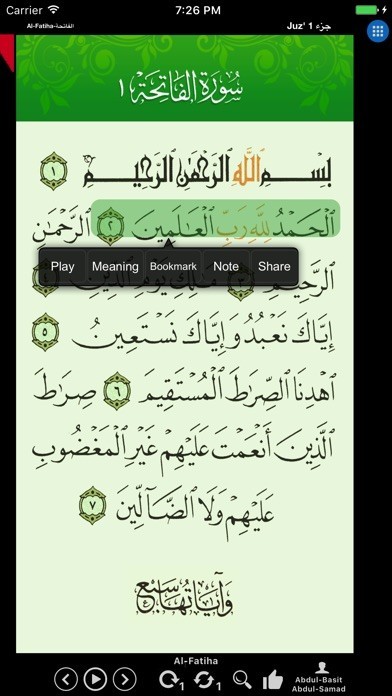 Carrier 7:26 PM
Al-Fatiha-الفاتحة Juz' 1 جزء
سُورَةُ الفَاتِحَةِ ١
بِسْمِ ٱللَّهِ ٱلرَّحْمَٰنِ ٱلرَّحِيمِ ١
ٱلْحَمْدُ لِلَّهِ رَبِّ ٱلْعَٰلَمِينَ ٢ ٱلرَّحْمَٰنِ
Play Meaning Bookmark Note Share
ٱلرَّحِيمِ ٣ مَٰلِكِ يَوْمِ ٱلدِّينِ ٤
إِيَّاكَ نَعْبُدُ وَإِيَّاكَ نَسْتَعِينُ ٥
ٱهْدِنَا ٱلصِّرَٰطَ ٱلْمُسْتَقِيمَ ٦ صِرَٰطَ
ٱلَّذِينَ أَنْعَمْتَ عَلَيْهِمْ غَيْرِ ٱلْمَغْضُوبِ
عَلَيْهِمْ وَلَا ٱلضَّآلِّينَ ٧
وَآيَاتُهَا سَبْعٌ
Al-Fatiha
1 1 Abdul-Basit
Abdul-Samad